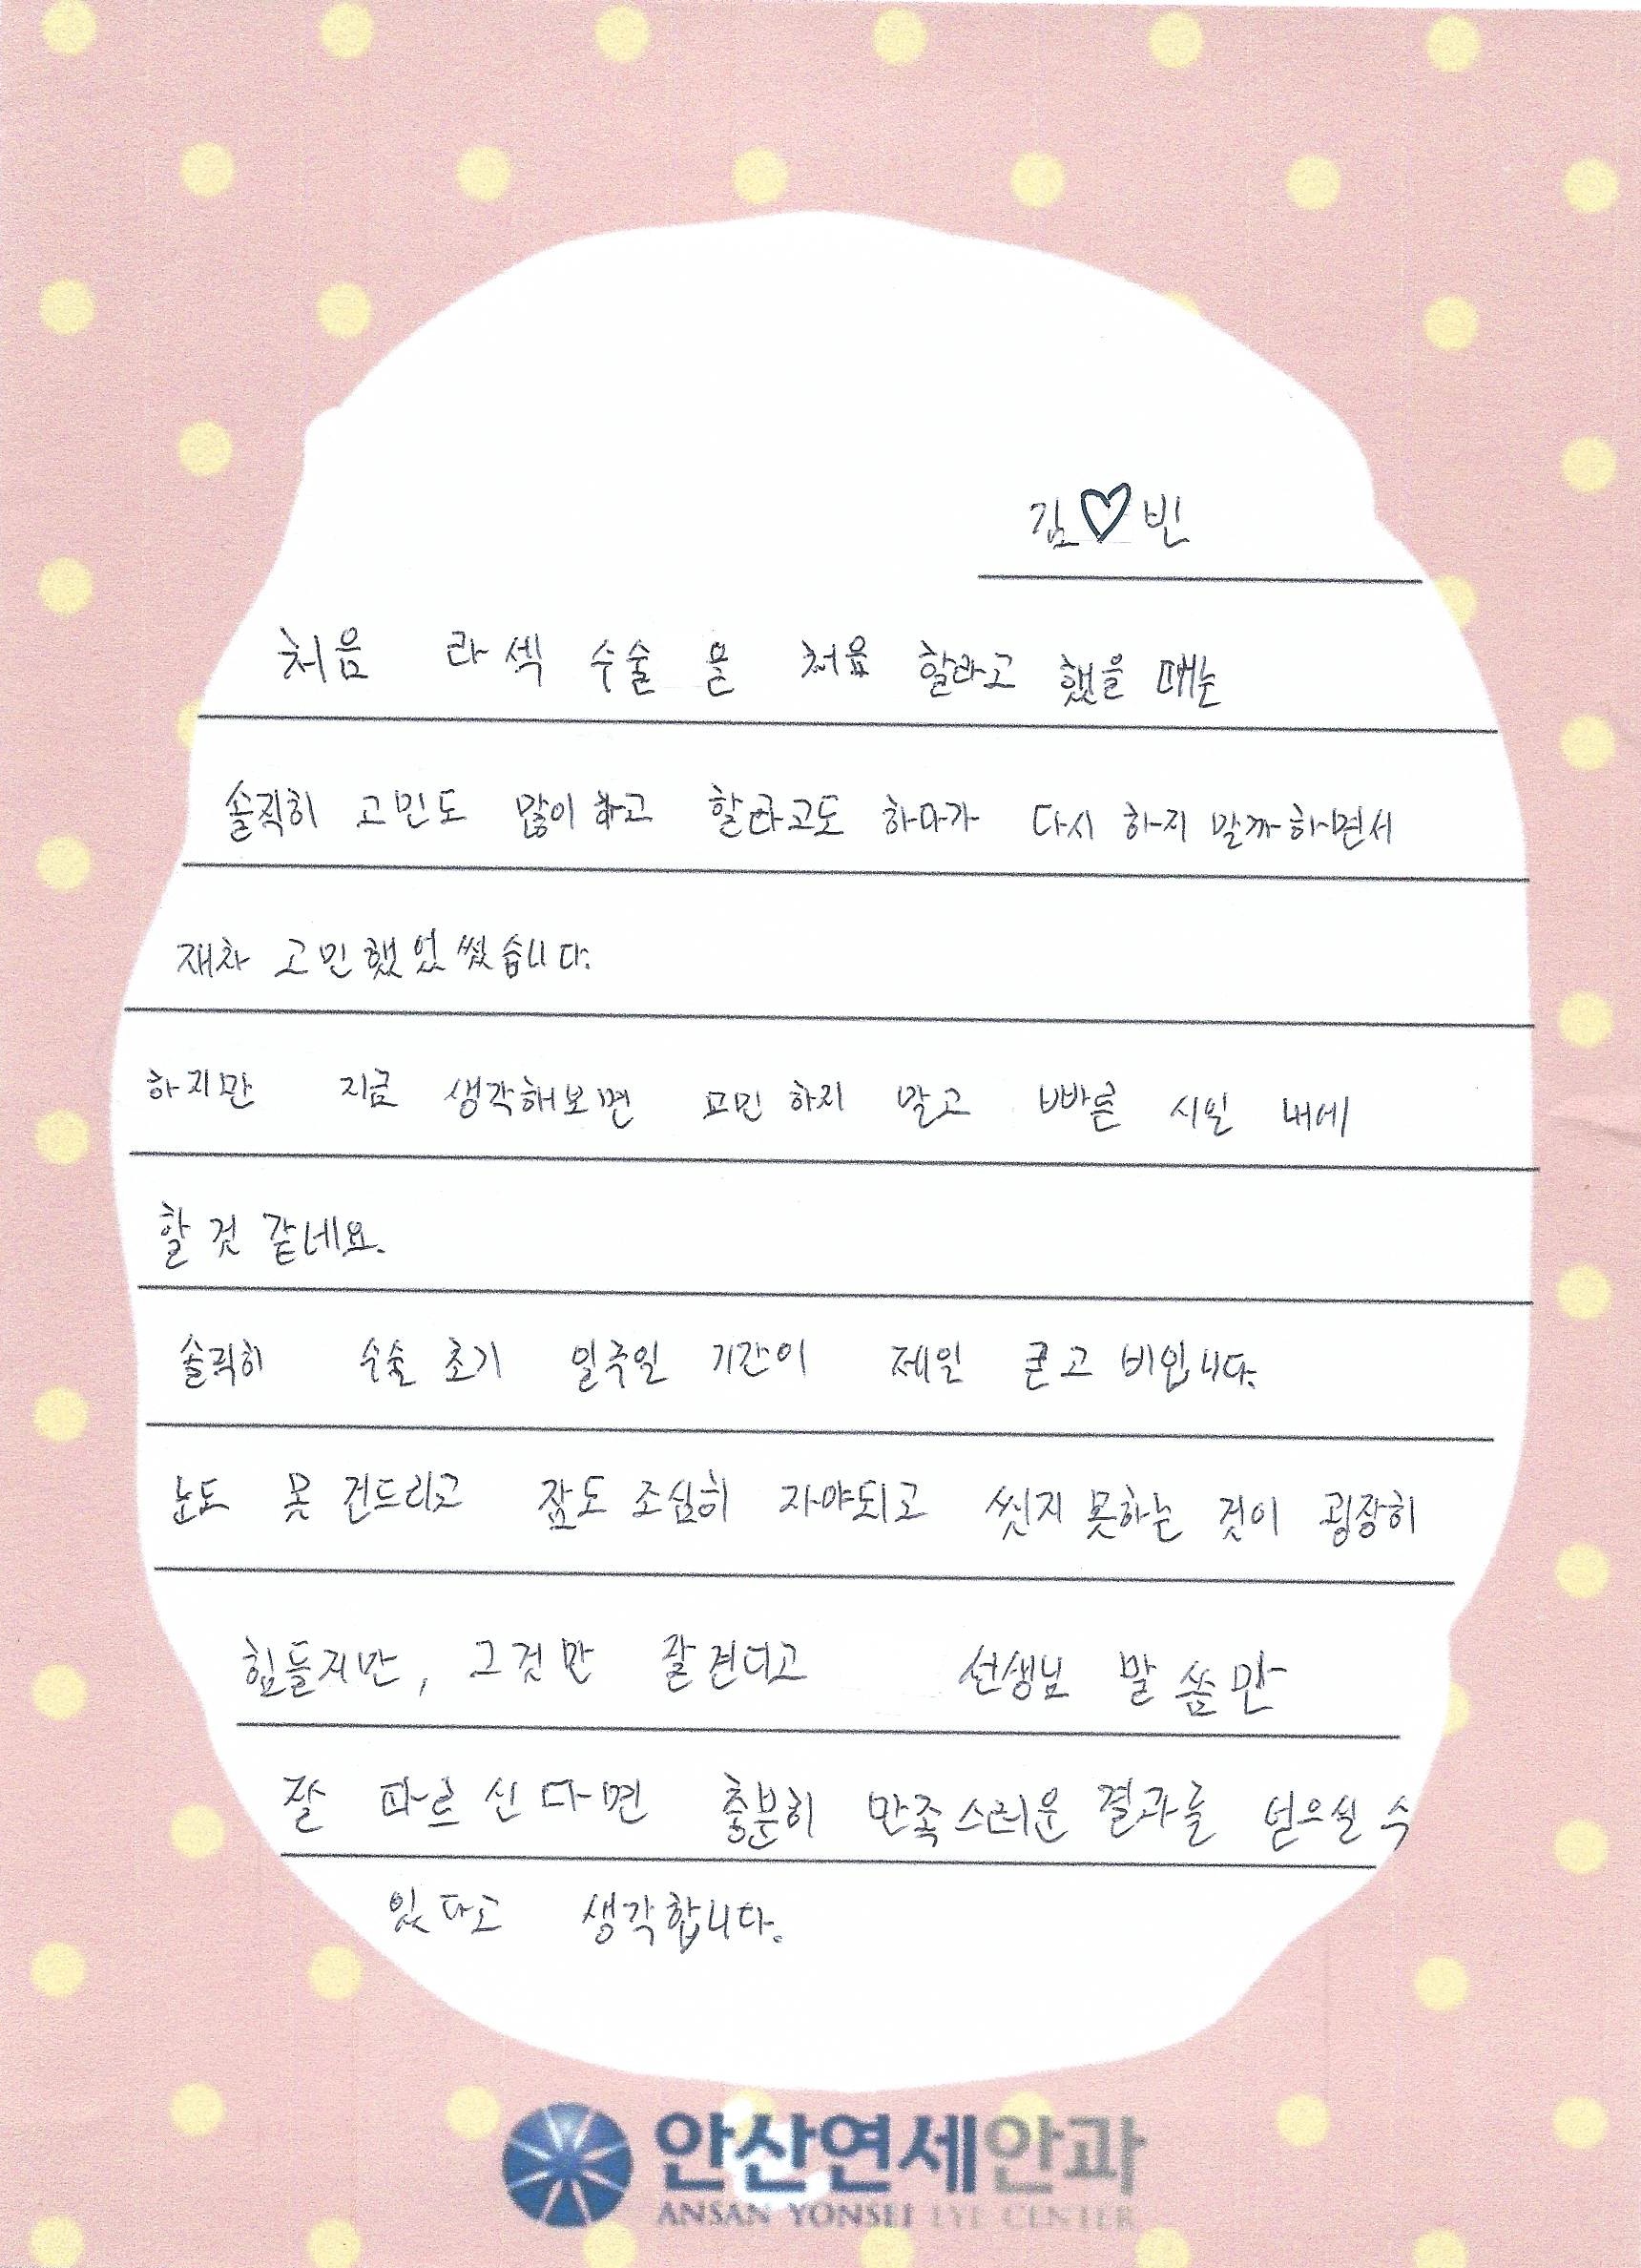 김♡빈
처음 라섹 수술 을 처음 할라고 했을 때는
솔직히 고민도 많이 하고 할라고도 하다가 다시 하지 말까하면서
재차 고민했었 씼습니다.
하지만 지금 생각해보면 고민 하지 말고 빠른 시일 내에
할 것 같네요.
솔직히 수술 초기 일주일 기간이 제일 큰 고비입니다.
눈도 못 건드리고 잠도 조심히 자야되고 씻지 못하는 것이 굉장히
힘들지만, 그것만 잘견디고 선생님 말씀만
잘 따르신다면 충분히 만족스러운 결과를 얻으실 수
있다고 생각합니다.
안산연세안과
ANSAN YONSEI EYE CENTER